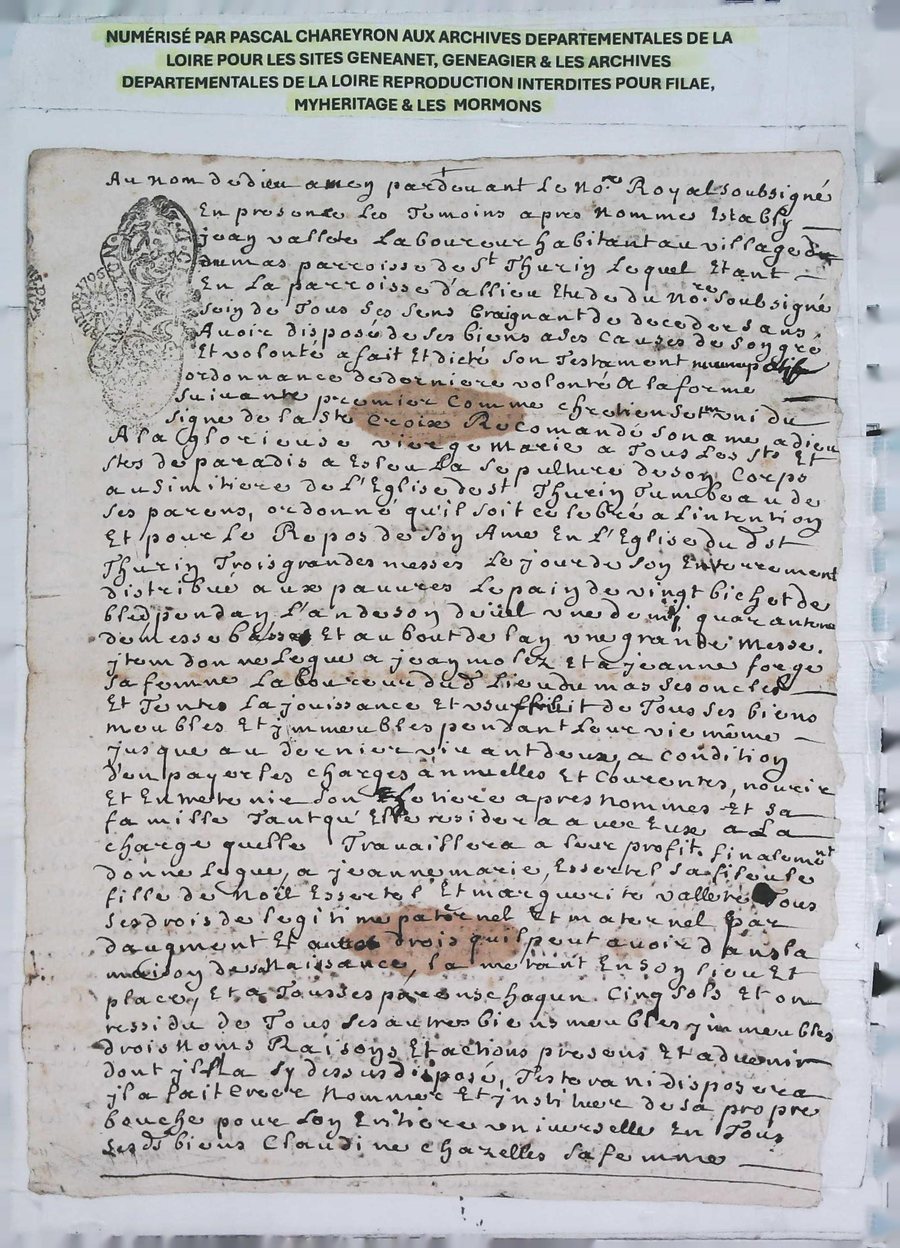 NUMÉRISÉ PAR PASCAL CHAREYRON AUX ARCHIVES DEPARTEMENTALES DE LA
LOIRE POUR LES SITES GENEANET, GENEAGIER & LES ARCHIVES
DEPARTEMENTALES DE LA LOIRE REPRODUCTION INTERDITES POUR FILAE,
MYHERITAGE & LES MORMONS
Au nom de dieu amen pardevant Le No.re Royal soubsigné
En presence Les Temoins apres Nomme Estably
jean vallete Laboureur habitant au village du
dumas parroisse de St Thurin Lequel Etant
En La parroisse d'allieu Etude du No.re Soubsigné
sein de Tous Ses sens Craignant de deceder sans
Avoir disposé de ses biens a Ses Causes de Son gré
Et volonté a fait Et dicté Son Testament nuncupatif
ordonnance de derniere volonté A la forme
Suivante premier Comme chretien Set muni du
signe de la Ste Croix Recomandé son ame a dieu
A la glorieuse vierge Marie a Tous Les Sts Et
Stes de paradis a Esleu La Sepulture de son Corps
au Simitiere de L'Eglise de St Thurin Tumbeau de
Ses parens, ordonné qu'il soit celebré a L'intention
Et pour Le Repos de Son Ame En L'Eglise du d St
Thurin Trois grandes messes Le jour de Son Enterrement
distribué aux pauvres Le pain de vingt bichet de
bled pendan L'an de son deüil une demi quarantene
de messe basse Et au bout de lan une grande Messe.
jtem donne Legue a jean molez Et a jeanne forge
Sa femme Laboureur dud Lieu du mas Ses oncles
Et Tentes La jouissance Et usuffruit de Tous Ses biens
meubles Et jmmeubles pendant Leur vie même
jusque au dernier vivant deux, a condition
d'en payer les charges annuelles Et Courentes, nourir
Et Entretenir Son hEritiere apres Nommes Et Sa
famille Tant qu' Elle residera avec Eux a La
charge quelle Travaillera a leur profit finalement
donne Legue, a jeanne marie, Essertel Sa filleule
fille de Noël Essertel Et marguerite vallete Tous
Ses drois de legitime paternel Et maternel par
daugment Et autres drois quil peut avoir dans la
maison de Naissance, la metant En son lieu Et
place, Et a Tous ses parens chaqun Cinq Sols Et on
ressidu de Tous Ses autres biens meubles jmmeubles
drois Noms Raisons Et actions presens Et advenir
dont jl Na Sy dessus disposé, Testera ni disposera
jl a fait Creer Nommer Et jnstituer de Sa propre
bouche pour Son Eritiere universelle En Tous
Ses ds biens Claudine chazelles Sa femme